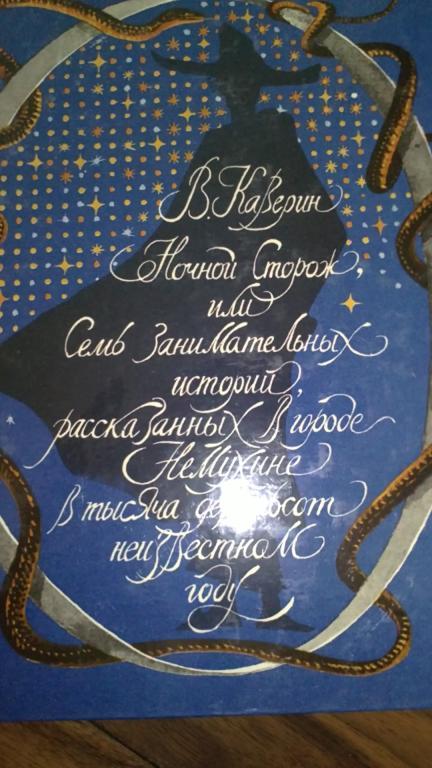 В. Каверин
Ночной Сторож,
или
Семь Занимательных
историй,
рассказанных в городе
Немухине
в тысяча девятьсот
неизвестном
году